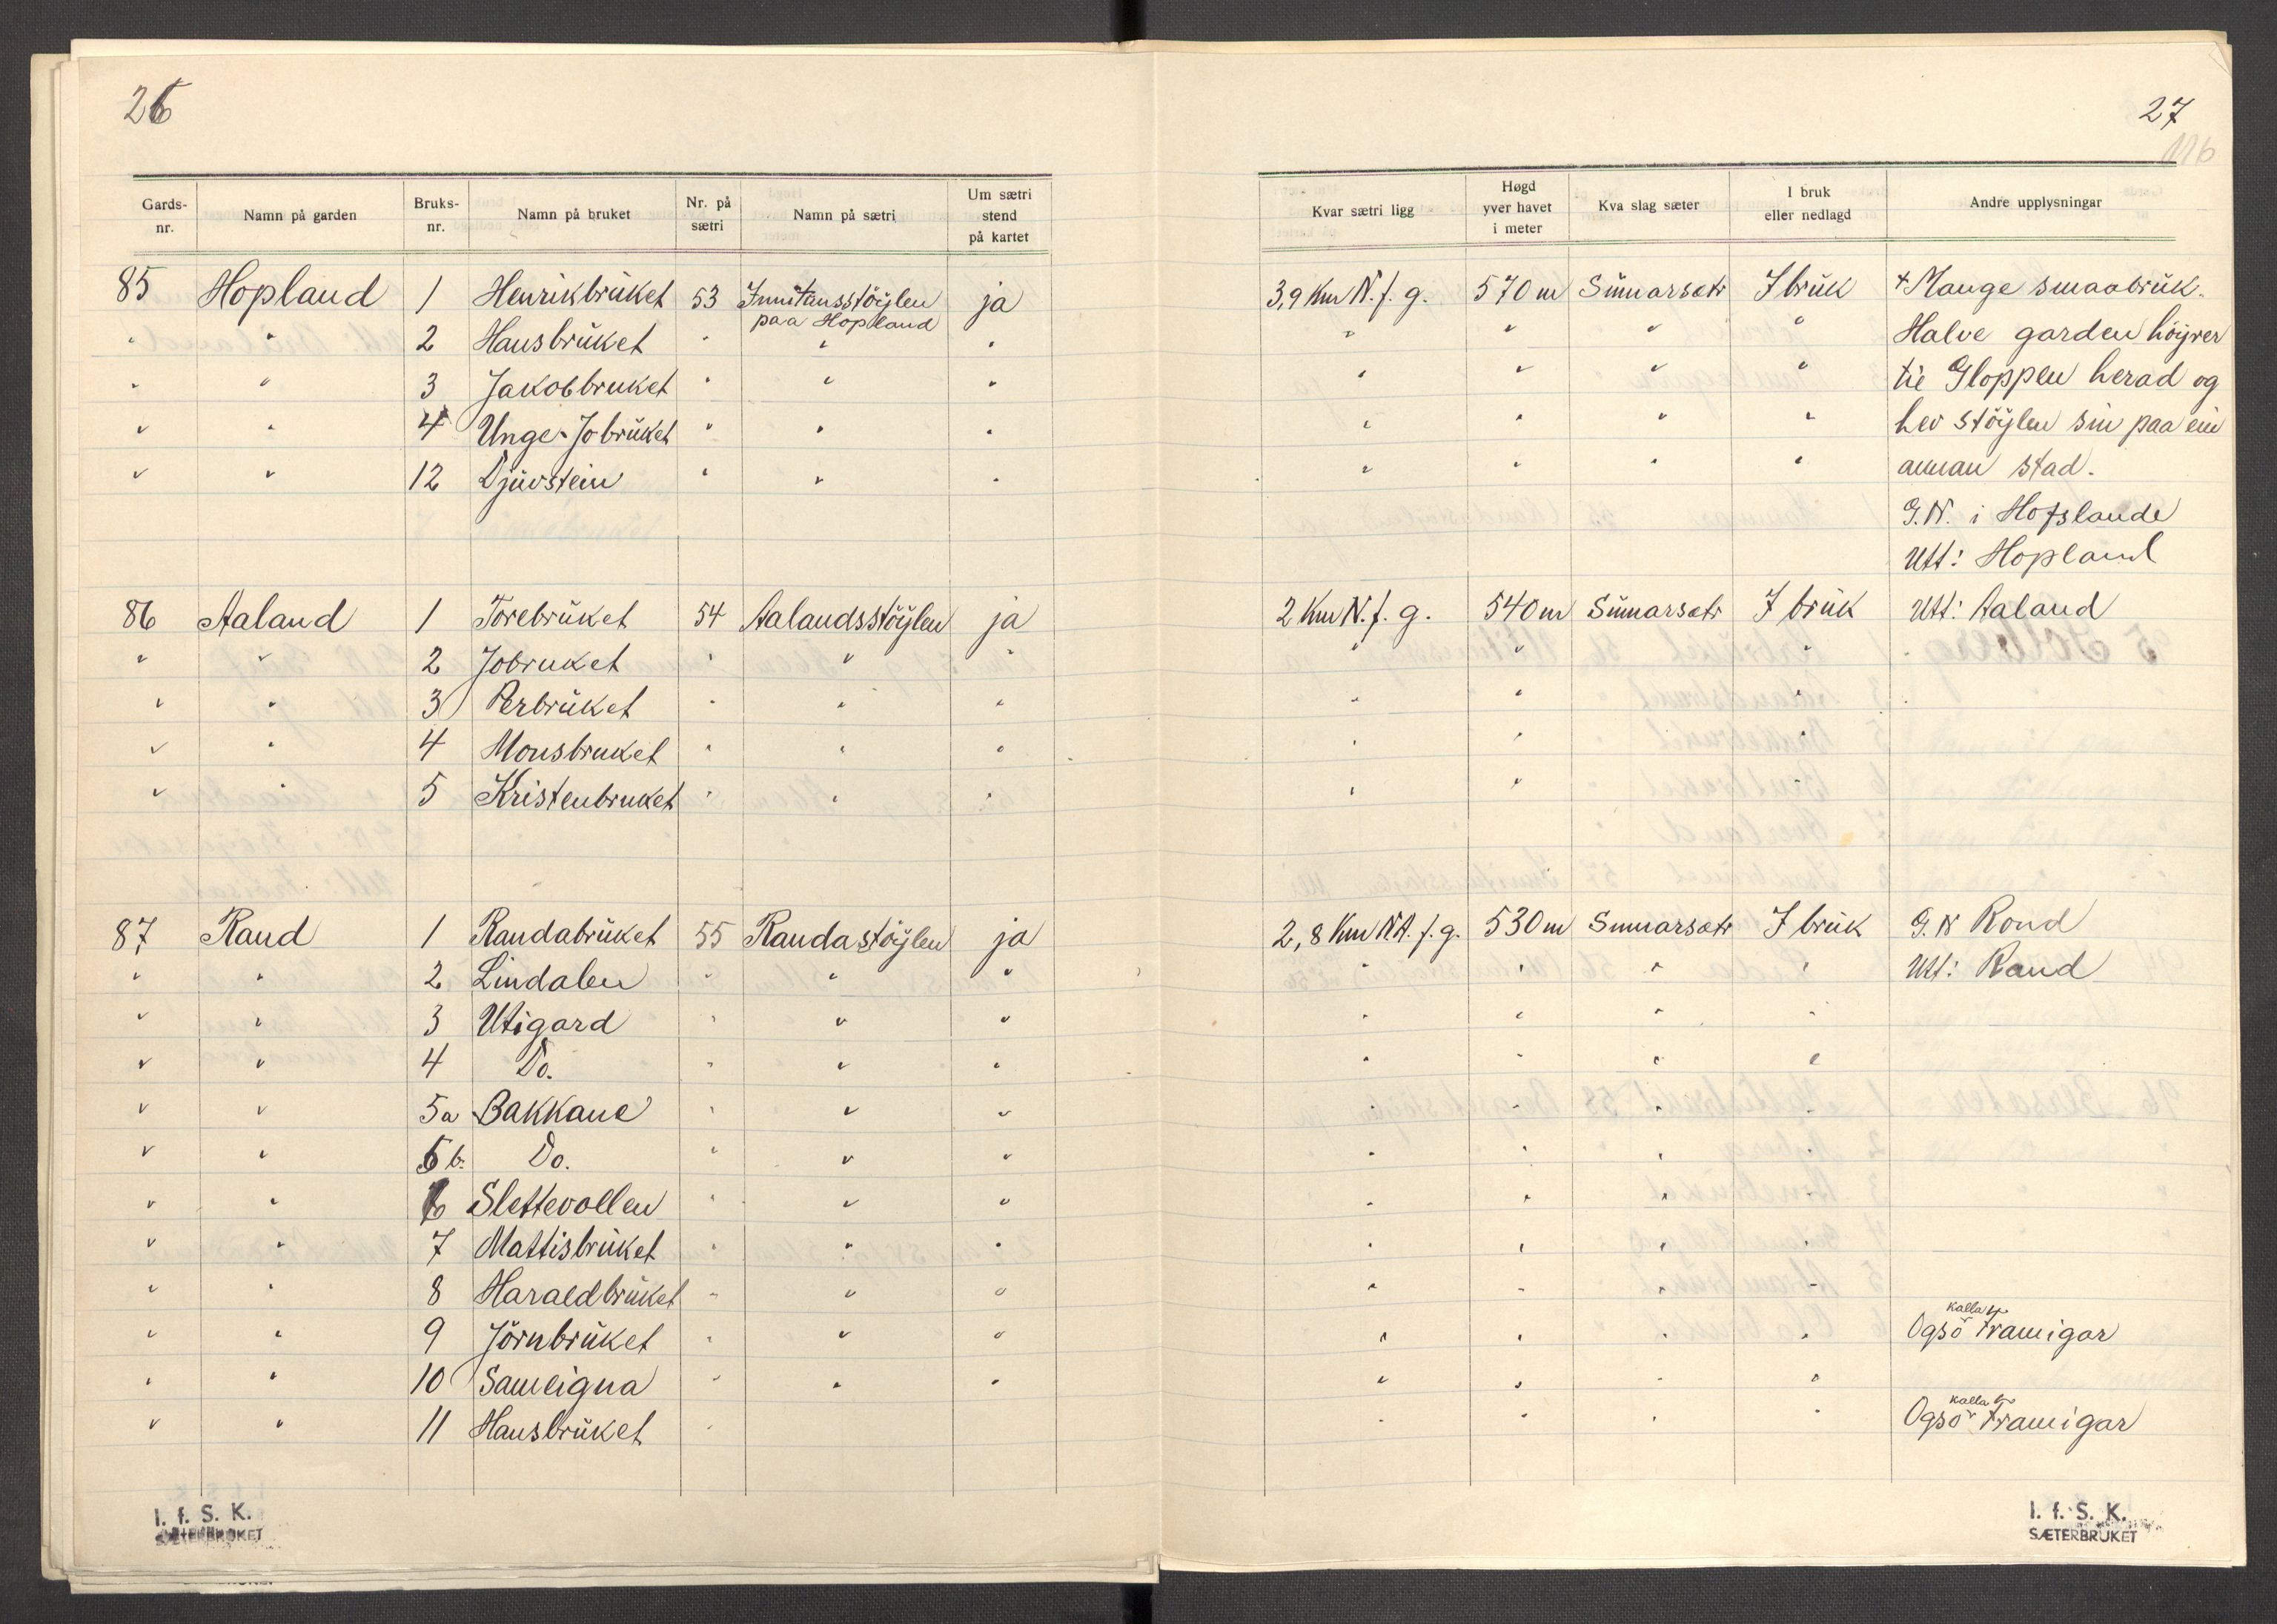 26
Gards-nr. Namn på garden Bruks-nr. Namn på bruket Nr. på sætri Namn på sætri Um sætri stend på kartet
85 Hopland 1 Henrikbruket 53 Innitansstöylen paa Hopland ja
" " 2 Hansbruket " " "
" " 3 Jakobbruket " " "
" " 4 Unge-Jobruket " " "
" " 12 Djuvstein " " "
86 Aaland 1 Torebruket 54 Aalandsstöylen ja
" " 2 Jobruket " " "
" " 3 Perbruket " " "
" " 4 Monsbruket " " "
" " 5 Kristenbruket " " "
87 Rand 1 Randabruket 55 Randastöylen ja
" " 2 Lindalen " " "
" " 3 Utigard " " "
" " 4 Do. " " "
" " 5a Bakkane " " "
" " 5b. Do. " " "
" " 6 Slettevollen " " "
" " 7 Mattisbruket " " "
" " 8 Haraldbruket " " "
" " 9 Jörnbruket " " "
" " 10 Sameigna " " "
" " 11 Hansbruket "
I. f. S. K.
SÆTERBRUKET
27
116
Kvar sætri ligg Høgd yver havet i meter Kva slag sæter I bruk eller nedlagd Andre upplysningar
3,9 Km N. f. g. 570 m Sumarsætr I bruk + Mange smaabruk.
" " " " Halve garden höyrer
" " " " til Gloppen herad og
" " " " hev stöylen sin paa ein
" " " " annan stad.
G.N. i Hofslande
Utt: Hopland
2 Km N. f. g. 540 m Sumarsætr I bruk Utt: Aaland
" " "
" " "
" " "
" " "
2,8 Km NA. f. g. 530 m Sumarsætr I bruk G.N Rond
" " " " Utt: Rand
" " " "
" " " "
" " " "
" " " "
" " " "
" " " "
" " " "
" " " " Ogso kalla Framigar
" " " "
" " " " Ogso kalla Framigar
I. f. S. K.
SÆTERBRUKET